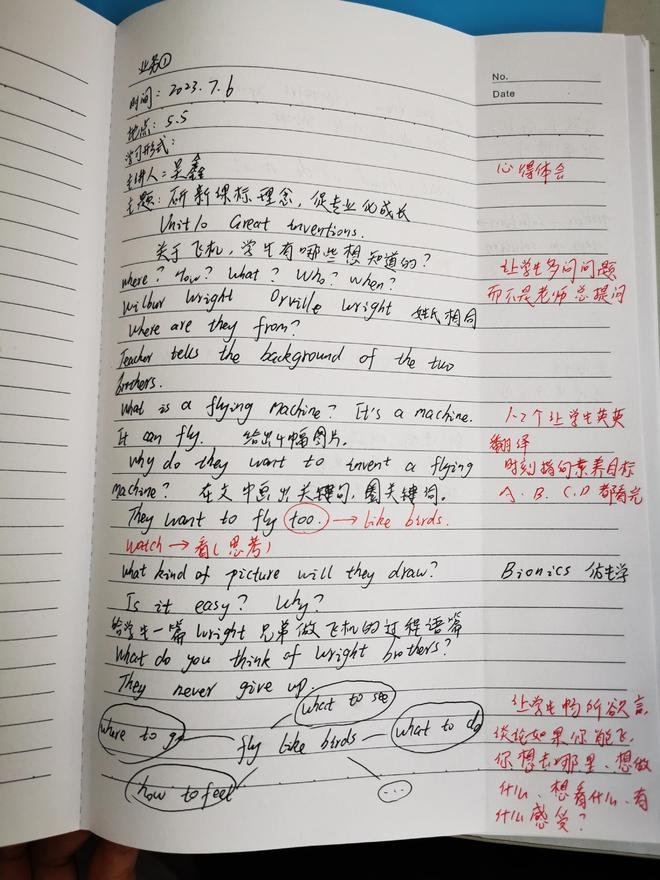 业务①
No.
Date
时间：2023.7.6
地点：5.5
学习形式：
主讲人：吴鑫
心得体会
主题：研新课标理念，促专业化成长
Unit10 Great inventions.
关于飞机，学生有哪些想知道的？
where? How? What? Who? When?
Wilbur Wright Orville Wright 姓氏相同
让学生多问问题
而不是老师总提问
Where are they from?
Teacher tells the background of the two
brothers.
What is a flying machine? It's a machine.
It can fly. 给出4幅图片。
1-2个让学生英英
翻译
Why do they want to invent a flying
machine? 在文中画出关键句，圈关键词。
时刻指向素养目标
A、B、C、D都看完
They want to fly too. → like birds.
watch → 看(思考)
What kind of picture will they draw?
Bionics 仿生学
Is it easy? Why?
给学生一篇Wright兄弟做飞机的过程语篇
What do you think of Wright brothers?
They never give up
what to see
where to go
fly like birds
what to do
how to feel
...
让学生畅所欲言,
谈论如果你能飞,
你想去哪里、想做
什么、想看什么、有
什么感受？